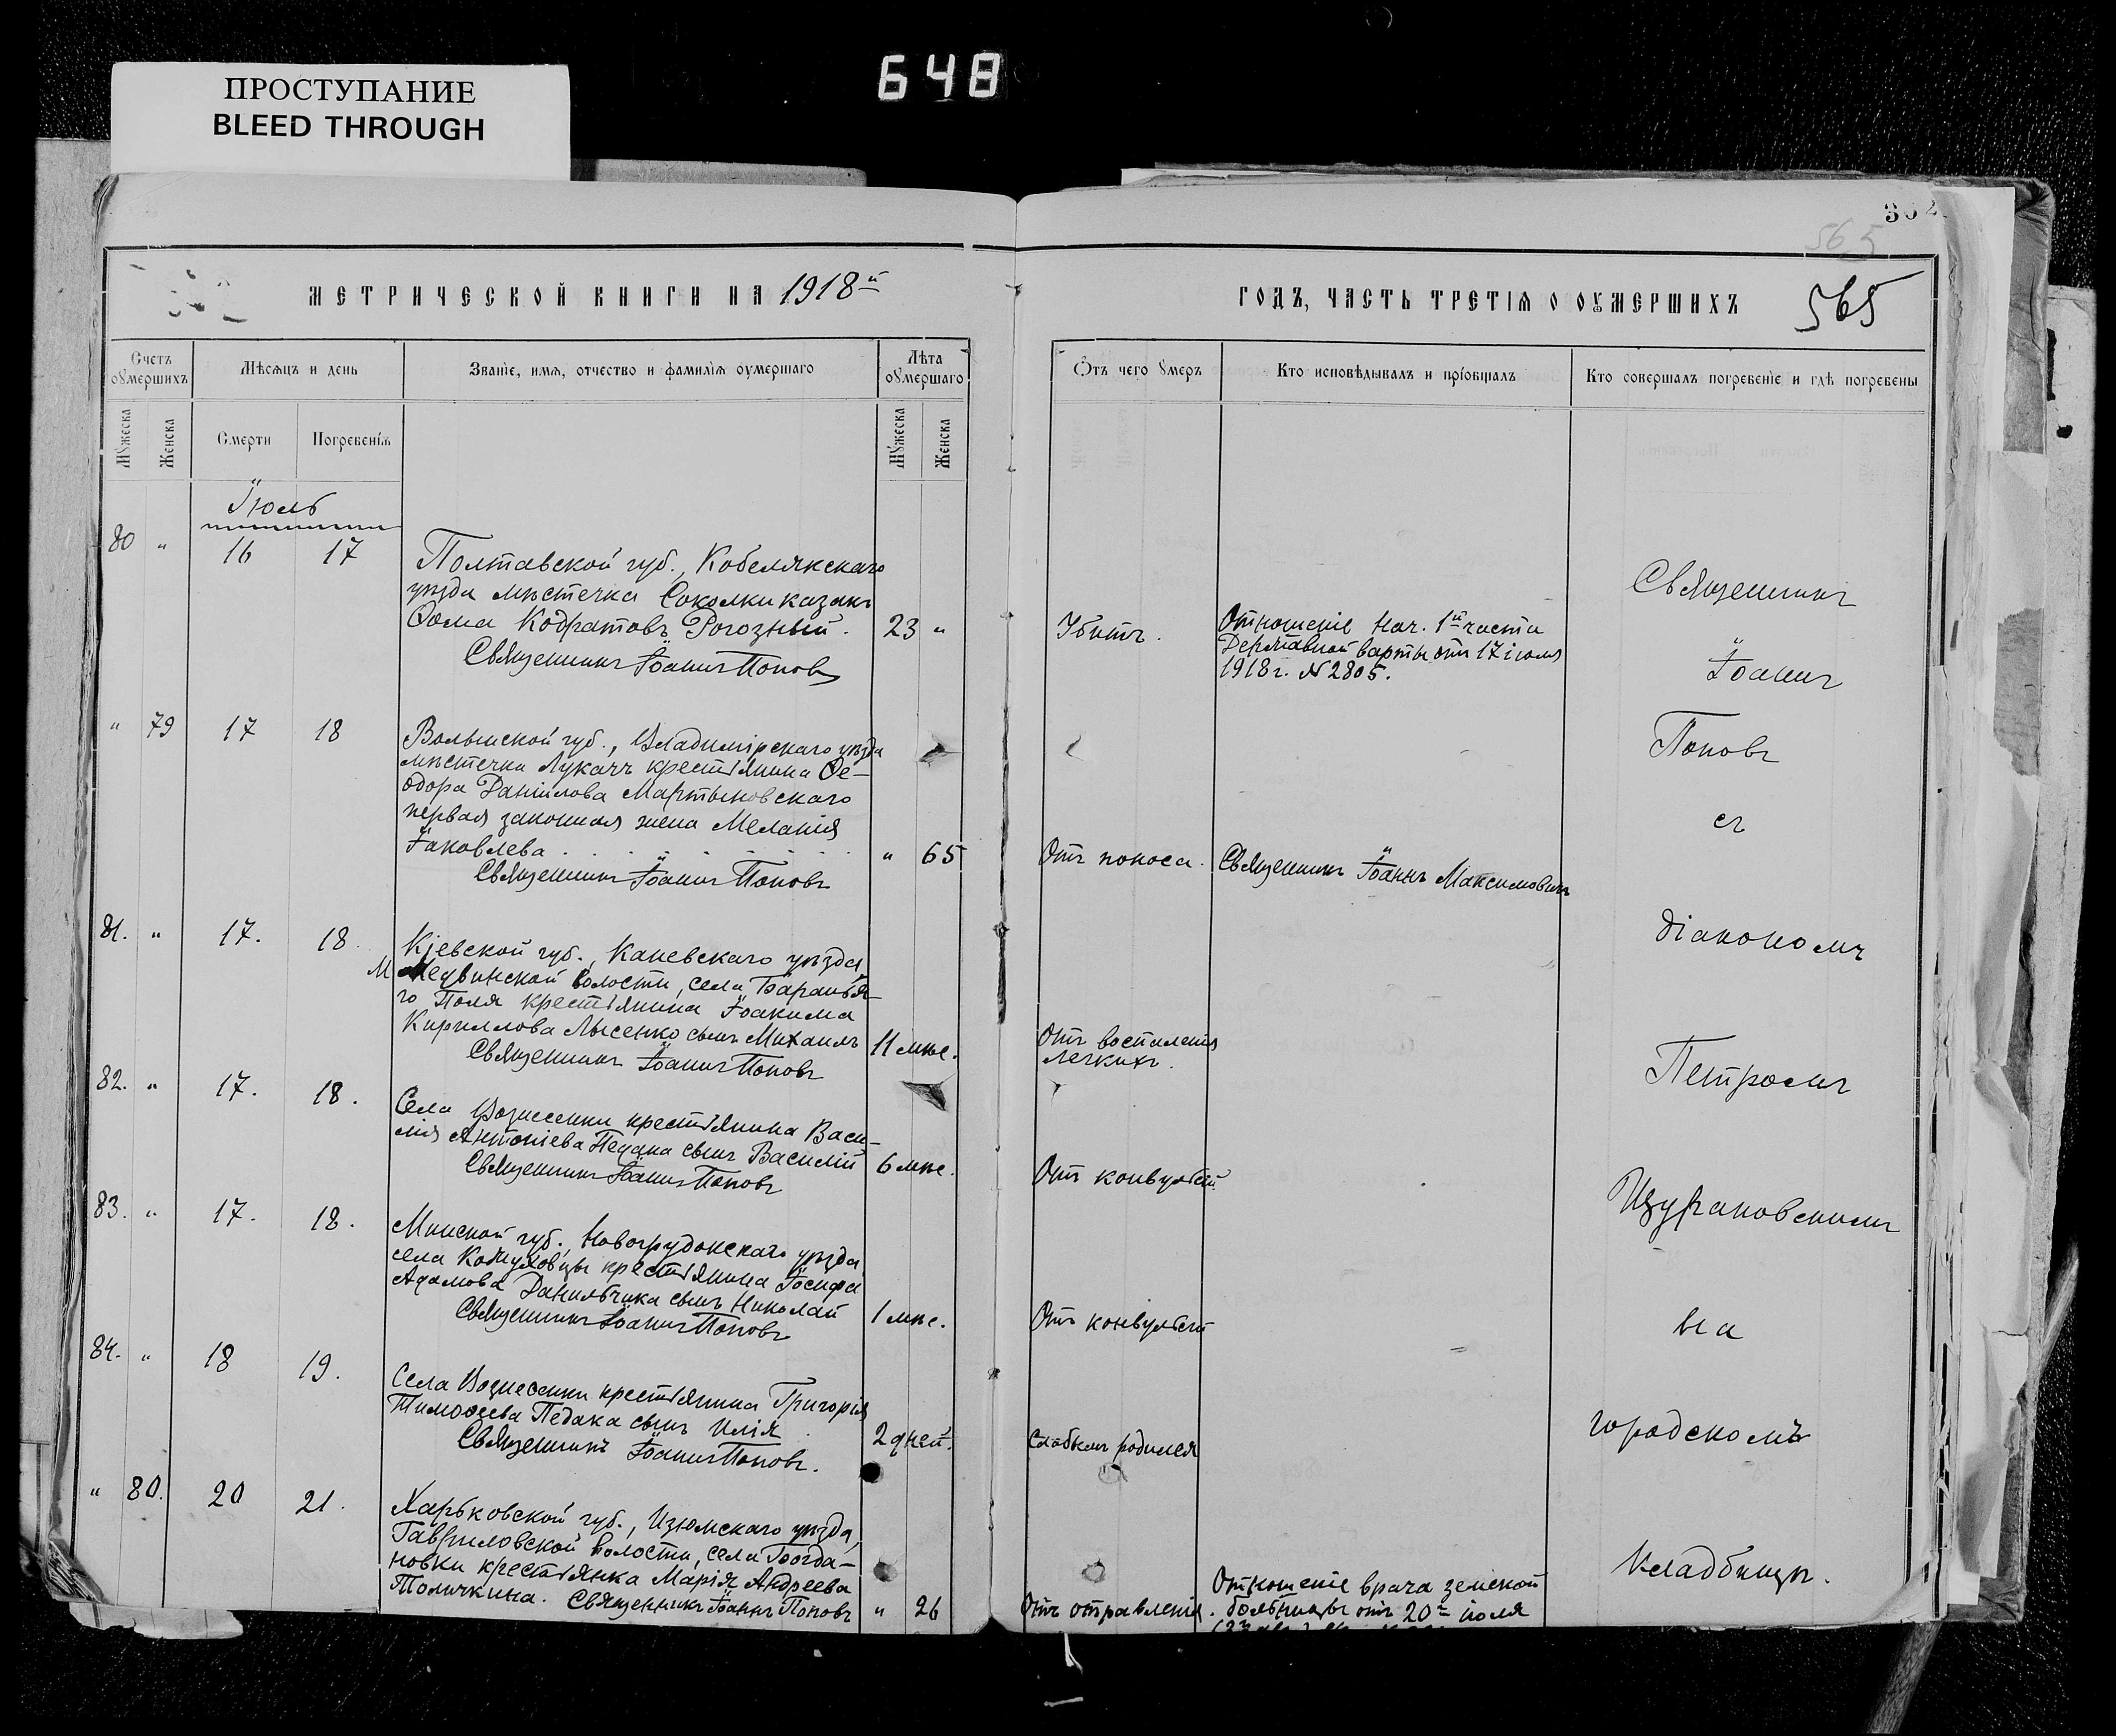 ПРОСТУПАНИЕ
BLEED THROUGH
648
302
565
МЕТРИЧЕСКОЙ КНИГИ НА 1918й
ГОДЪ, ЧАСТЬ ТРЕТІѦ О ОУМЕРШИХЪ
565
Счетъ оумершихъ
Мѣсѧцъ и день
Званіе, имѧ, отчество и фамиліѧ оумершаго
Лѣта оумершаго
Отъ чего умеръ
Кто исповѣдывалъ и пріобщалъ
Кто совершалъ погребеніе и гдѣ погребены
Мужеска
Женска
Смерти
Погребеніѧ
Мужеска
Женска
Іюль
80 " 16 17
Полтавской губ., Кобелякскаго
уѣзда мѣстечка Соколки казакъ
Ѳома Кодратовъ Рогозный. 23 "
Священникъ Іоаннъ Поповъ
Убитъ.
Отношеніе Нач. 1й части
Державной варты отъ 17 іюля
1918 г. № 2805.
" 79 17 18
Волынской губ., Владимірскаго уѣзда
мѣстечка Лукачъ крестьянина Ѳе-
одора Даніилова Мартыновскаго
первая законная жена Меланія
Іаковлева " 65
Священникъ Іоаннъ Поповъ
Отъ поноса.
Священникъ Іоаннъ Максимовичъ
81. " 17. 18
Кіевской губ., Каневскаго уѣзда
М Медвинской волости, села Бараньяго
го Поля крестьянина Іоакима
Кириллова Лысенко сынъ Михаилъ 11 мѣс.
Священникъ Іоаннъ Поповъ
Отъ воспаленія
легкихъ.
82. " 17. 18.
Села Вознесенки крестьянина Васи-
лія Антоніева Педака сынъ Василій 6 мѣс.
Священникъ Іоаннъ Поповъ
Отъ конвульсій.
83. " 17. 18.
Минской губ., Новогрудокскаго уѣзда
села крестьянина Іосифа
Адамова Данильчика сынъ Николай 1 мѣс.
Священникъ Іоаннъ Поповъ
Отъ конвульсій
84. " 18 19.
Села Вознесенки крестьянина Григорія
Тимоѳеева Педака сынъ Илія 2 дней.
Священникъ Іоаннъ Поповъ.
Слабымъ родился
" 80. 20 21.
Харьковской губ., Изюмскаго уѣзда,
Гавриловской волости, села Богда-
новки крестьянка Марія Андреева
Толичкина. Священникъ Іоаннъ Поповъ " 26
Отъ отравленія.
Отношеніе врача земской
больницы отъ 20го іюля
Священникъ
Іоаннъ
Поповъ
съ
діакономъ
Петромъ
на
городскомъ
кладбищѣ.